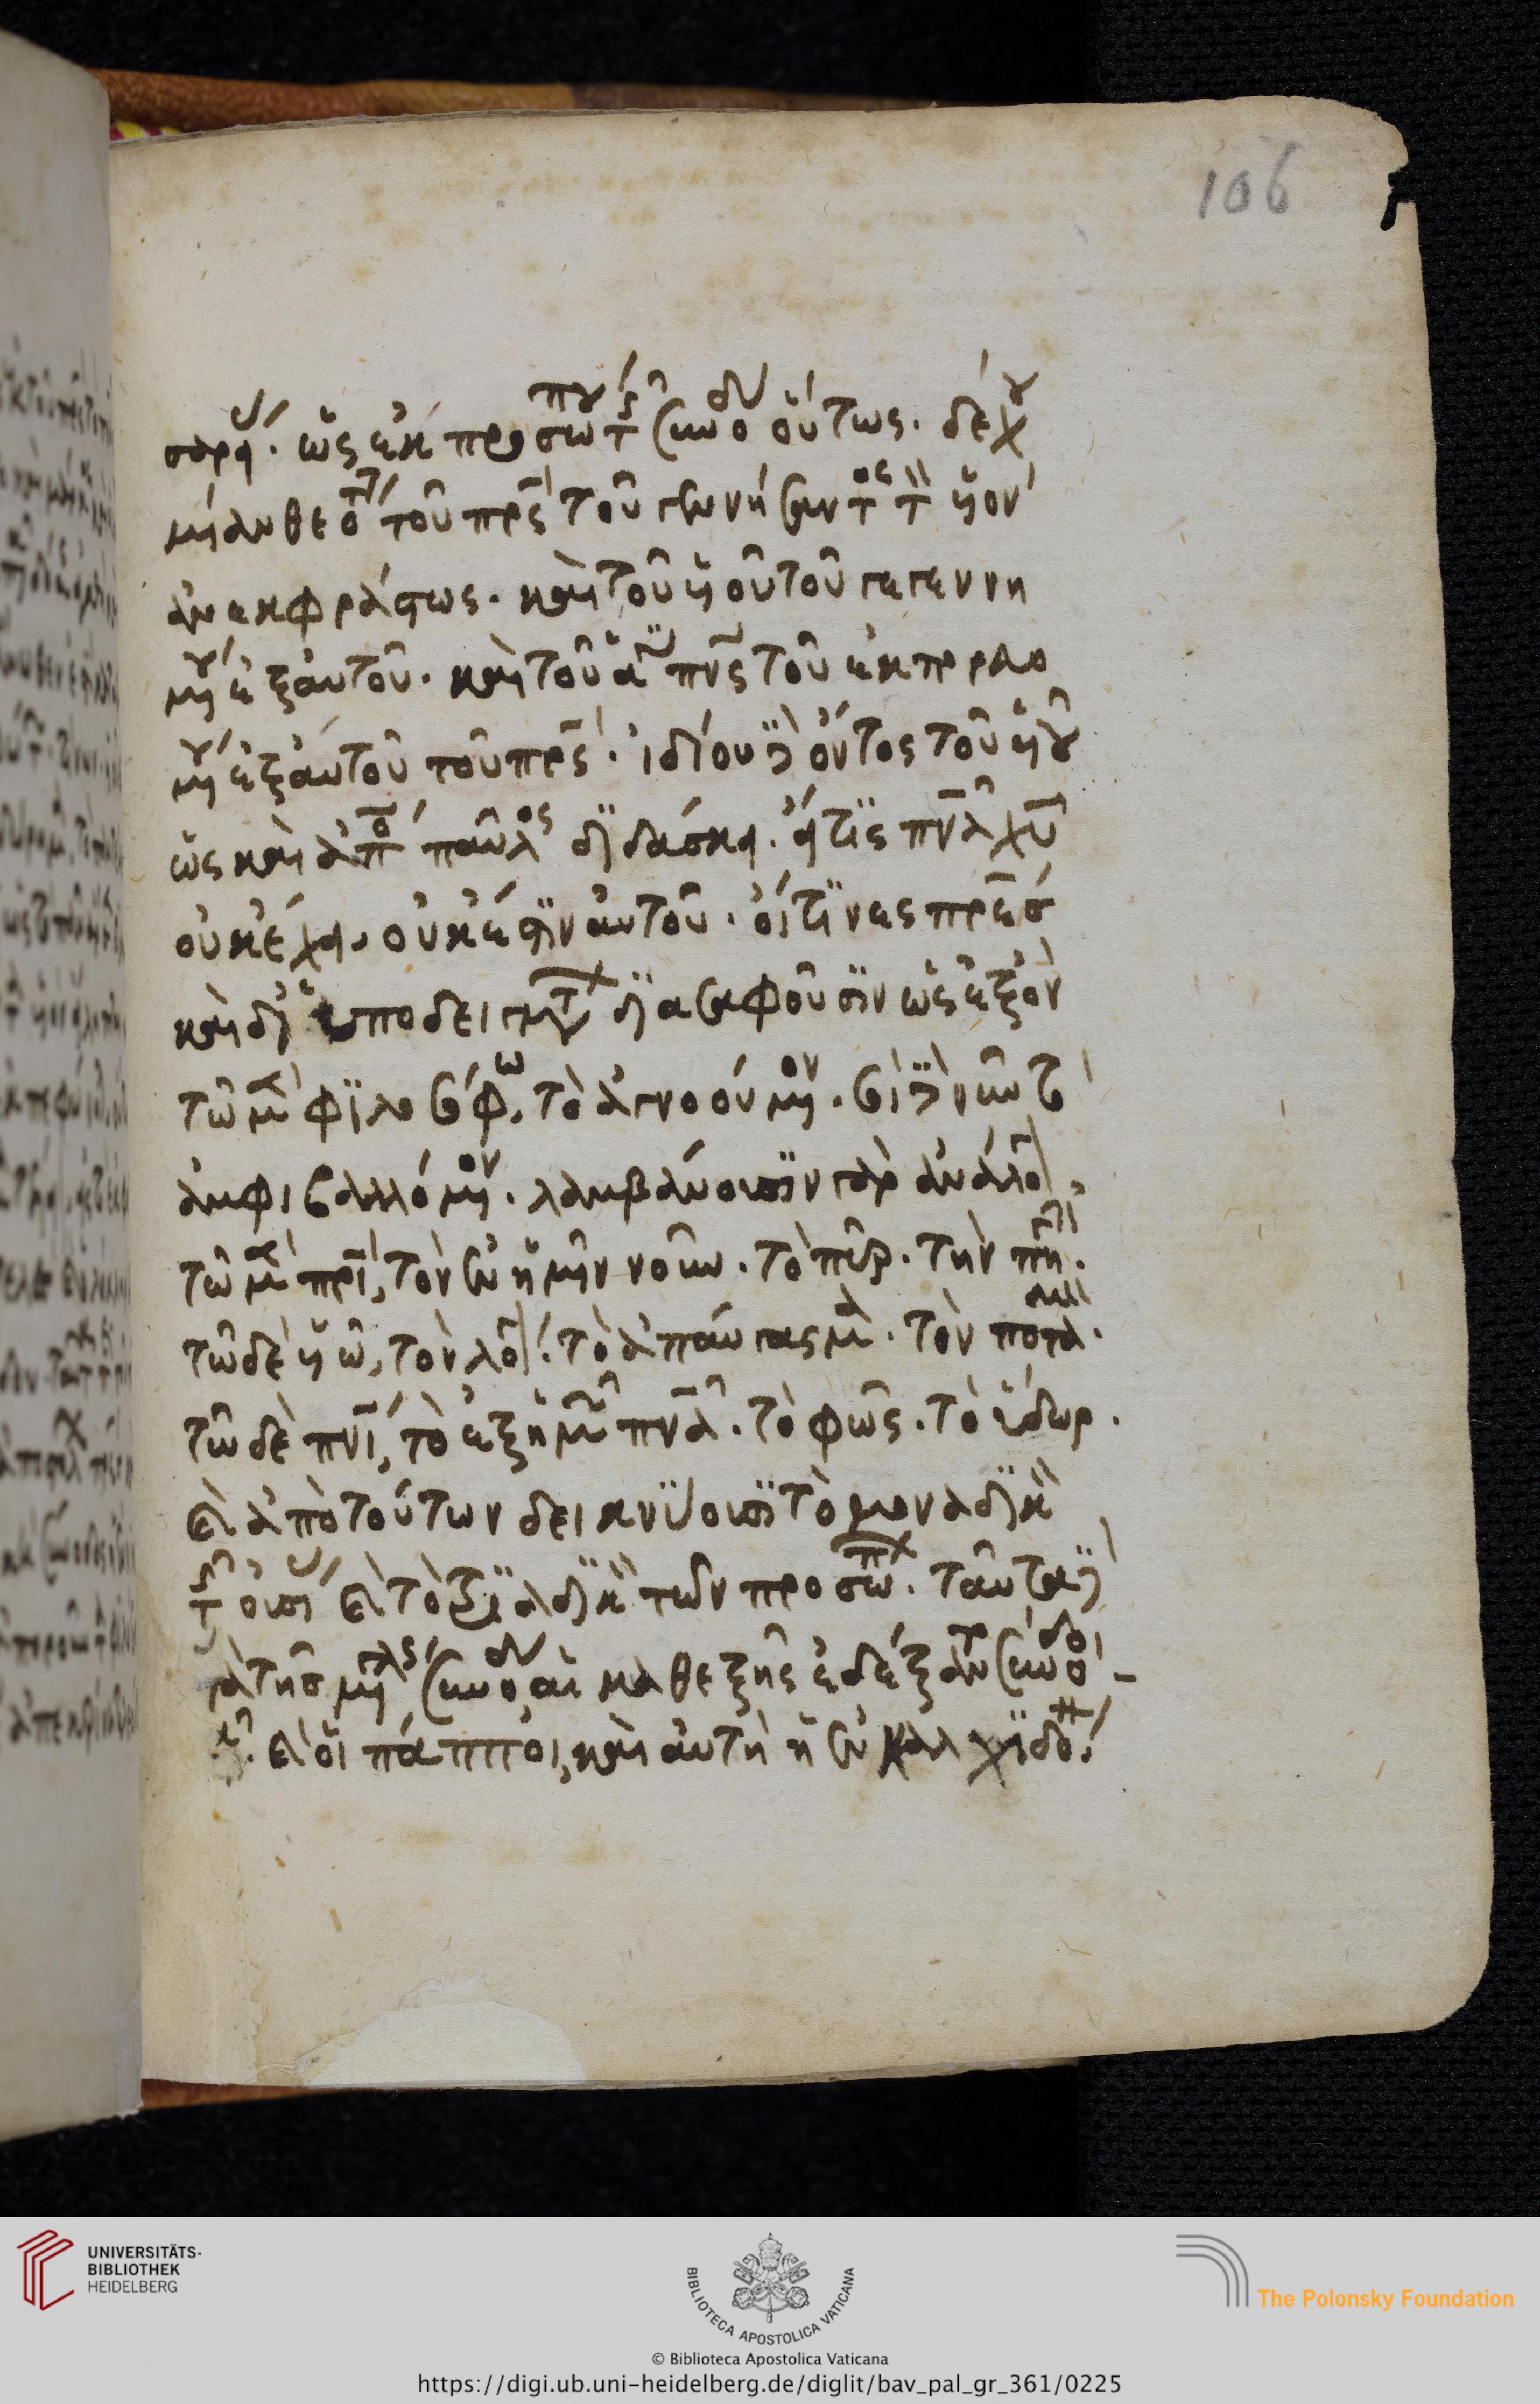 106
ὡς ἐκ προσώπου τῆς συνόδου οὕτως. δέχου
τοῦ πρς τοῦ γεννήσαντος τὸν υἱὸν
ἀνεκφράστως. καὶ τοῦ υἱοῦ τοῦ γεγεννη
μένου ἐξ αὐτοῦ. καὶ τοῦ ἁγίου πνς τοῦ ἐκπορευο
μένου ἐξ αὐτοῦ τοῦ πρς. ἰδίου δὲ ὄντος τοῦ υἱοῦ
ὡς καὶ ὁ παῦλος διδάσκει. εἴ τις πνα χυ
οὐκ ἔχει, οὐκ ἔστιν αὐτοῦ. οἵτινες πρες
καὶ δι' ὑποδειγμάτων διασαφοῦσιν ὡς ἐξὸν
τῶ μὲν φιλοσόφω, τὸ ἀγνοούμενον.
ἀμφιβαλλόμενον. λαμβάνουσιν γὰρ ἀνάλογον
τῶ μὲν πρι, τὸν ἐν ἡμῖν νοῦν. τὸ πῦρ. τὴν πηγήν.
τῶ δὲ υἱῶ, τὸν λόγον. τὸ ἀπαύγασμα. τὸν ποταμόν.
τῶ δὲ πνι, τὸ ἐξ ἡμῶν πνα. τὸ φῶς. τὸ ὕδωρ.
καὶ ἀπὸ τούτων δεικνύουσι τὸ μοναδικὸν
τῆς οὐσίας καὶ τὸ τριαδικὸν τῶν προσώπων. ταῦτα δὲ
καθεξῆς ἐδέξαντο σύνοδοι
καὶ οἱ πάπποι, καὶ αὐτὴ ἡ ἐν καλχιδόνι
UNIVERSITÄTS-
BIBLIOTHEK
HEIDELBERG
BIBLIOTECA APOSTOLICA VATICANA
The Polonsky Foundation
© Biblioteca Apostolica Vaticana
https://digi.ub.uni-heidelberg.de/diglit/bav_pal_gr_361/0225